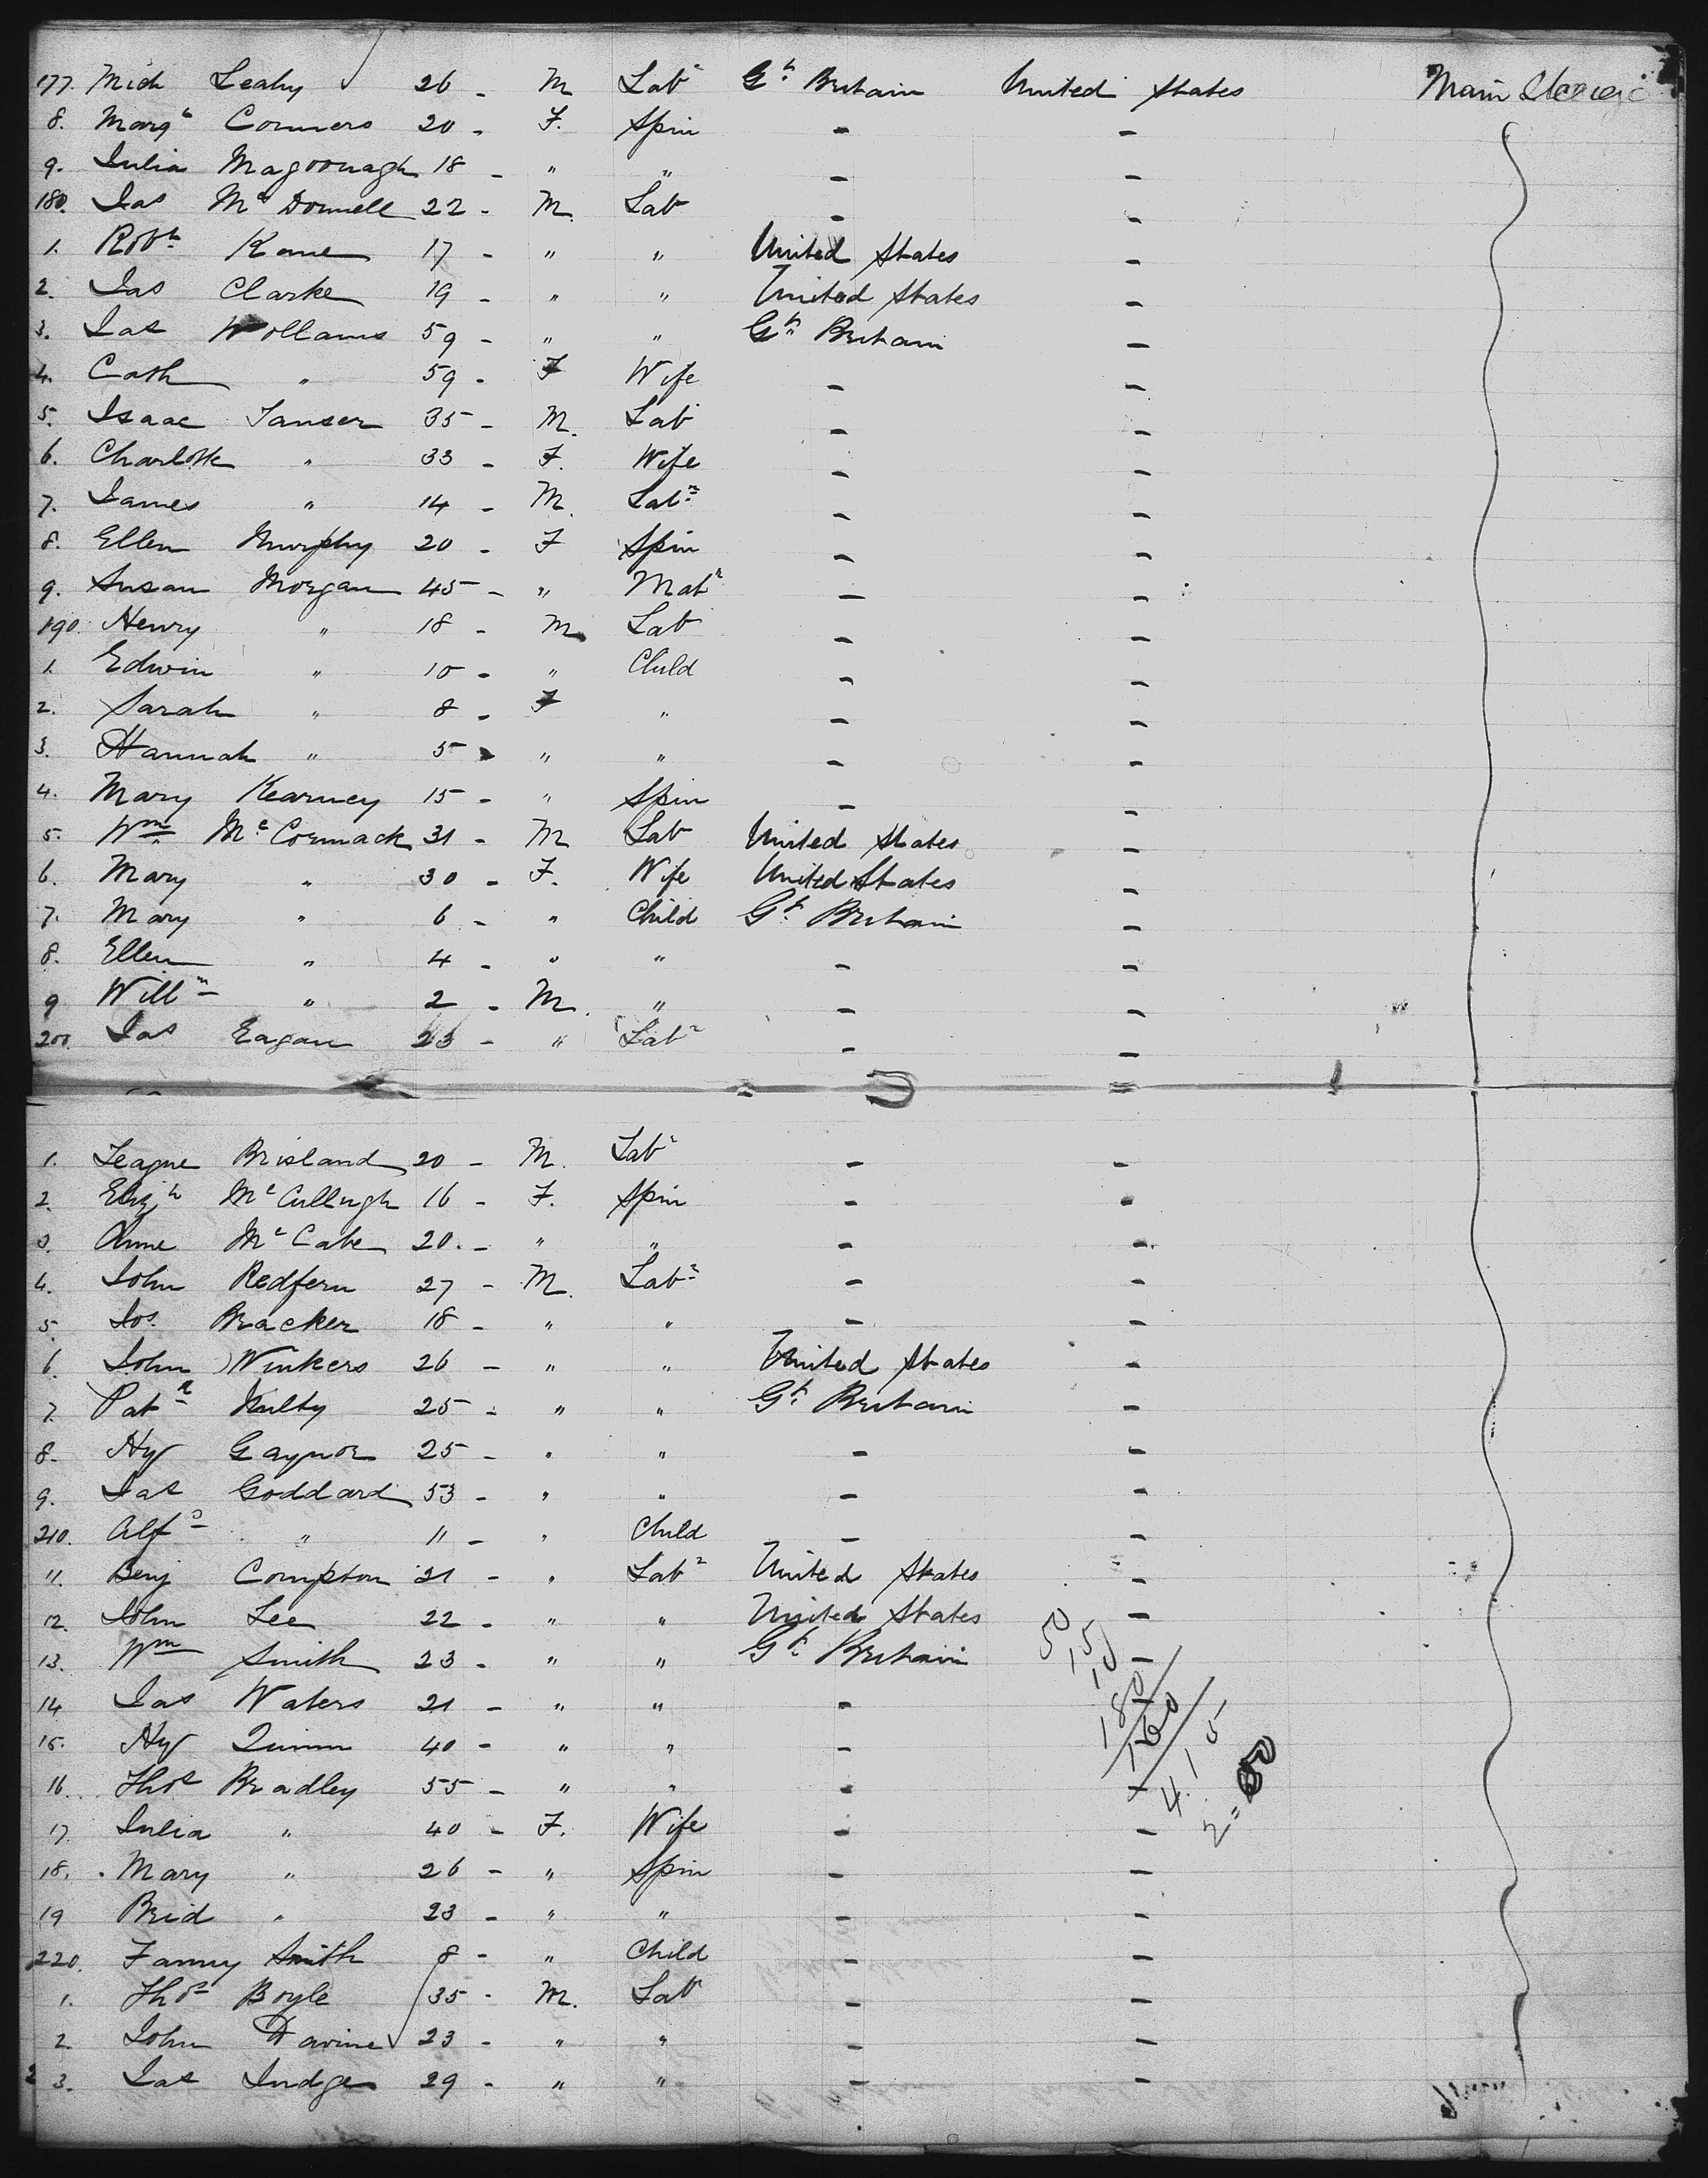 177. Mich Leahy 26 - M Labr Gt. Britain United States Main Steerage
8. Margt Conners 20 - F. Spin - -
9. Julia Magoonagh 18 - " " - -
180. Jas McDonnell 22 - M. Lab - -
1. Robt Kane 17 - " " United States -
2. Jas Clarke 19 - " " United States -
3. Jas Wollams 59 - " " Gt. Britain -
4. Cath " 59 - F Wife - -
5. Isaac Tanser 35 - M. Lab - -
6. Charlotte " 33 - F. Wife - -
7. James " 14 - M. Labr - -
8. Ellen Murphy 20 - F Spin - -
9. Susan Morgan 45 - " Matr - -
190. Henry " 18 - M Lab - -
1. Edwin " 10 - " Child - -
2. Sarah " 8 - F " - -
3. Hannah " 5 - " " - -
4. Mary Kearney 15 - " Spin - -
5. Wm McCormack 31 - M Lab United States -
6. Mary " 30 - F. Wife United States -
7. Mary " 6 - " Child Gt. Britain -
8. Ellen " 4 - " " - -
9 Willm " 2 - M. " - -
200. Jas Eagan 23 - " Labr - -
1. Teague Brisland 20 - M. Labr - -
2. Elizh McCullugh 16 - F. Spin - -
3. Anne McCabe 20. - " " - -
4. John Redfern 27 - M. Labr - -
5. Jos. Bracker 18 - " " - -
6. John Winkers 26 - " " United States -
7. Patk Nulty 25 - " " Gt. Britain -
8. Hy Gaynor 25 - " " - -
9. Jas Goddard 53 - " " - -
210. Alfd " 11 - " Child - -
11. Benj Compton 21 - " Labr United States -
12. John Lee 22 - " " United States -
13. Wm Smith 23 - " " Gt. Britain -
14 Jas Waters 21 - " " - -
15. Hy Quinn 40 - " " - -
16. Thos Bradley 55 - " " - -
17. Julia " 40 - F. Wife - -
18. Mary " 26 - " Spin - -
19 Brid " 23 - " " - -
220. Fanny Smith 8 - " Child - -
1. Thos Boyle 35 - M. Lab - -
2. John Davine 23 - " " - -
3. Jas Judge 29 - " " - -
50
15
10
180
160
415